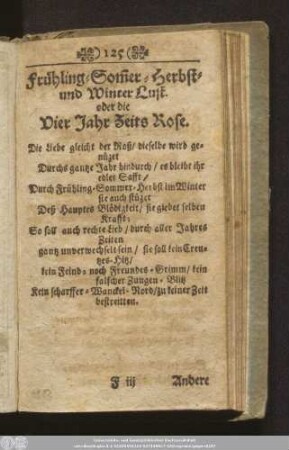 125
Frühling-Som̃er-Herbst-
und Winter Lust.
oder die
Vier Jahr Zeits Rose.
Die Liebe gleicht der Roß/ dieselbe wird ge-
nützet
Durchs gantze Jahr hindurch/ es bleibt ihr
edler Safft/
Durch Frühling-Sommer-Herbst im Winter
sie auch stützet
Deß Hauptes Blödigkeit/ sie giebet selben
Krafft:
So soll auch rechte Lieb/ durch aller Jahres
Zeiten
gantz unverwechselt sein/ sie soll kein Creu-
tzes-Hitz/
kein Feind- noch Freundes-Grimm/ kein
falscher Zungen-Blitz
Kein scharffer-Wanckel-Nord/ zu keiner Zeit
bestreitten.
F iij Andere